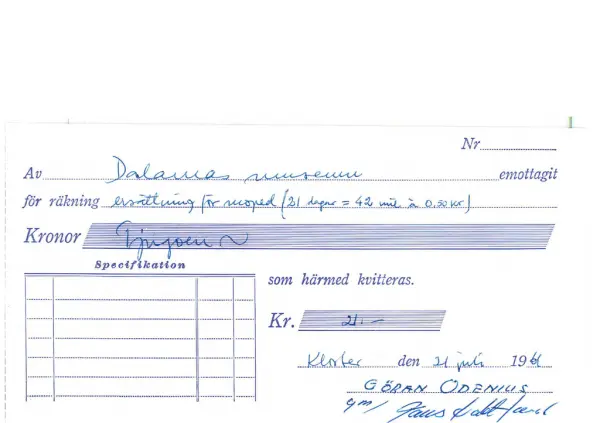 Nr
Av Dalarnas museum emottagit
för räkning ersättning för moped (21 dagar = 42 mil à 0,50 kr)
Kronor Tjugoen
Specifikation
som härmed kvitteras.
Kr. 21.-
Kloster den 21 juli 1961
GÖRAN ODENIUS
gm/ Hans